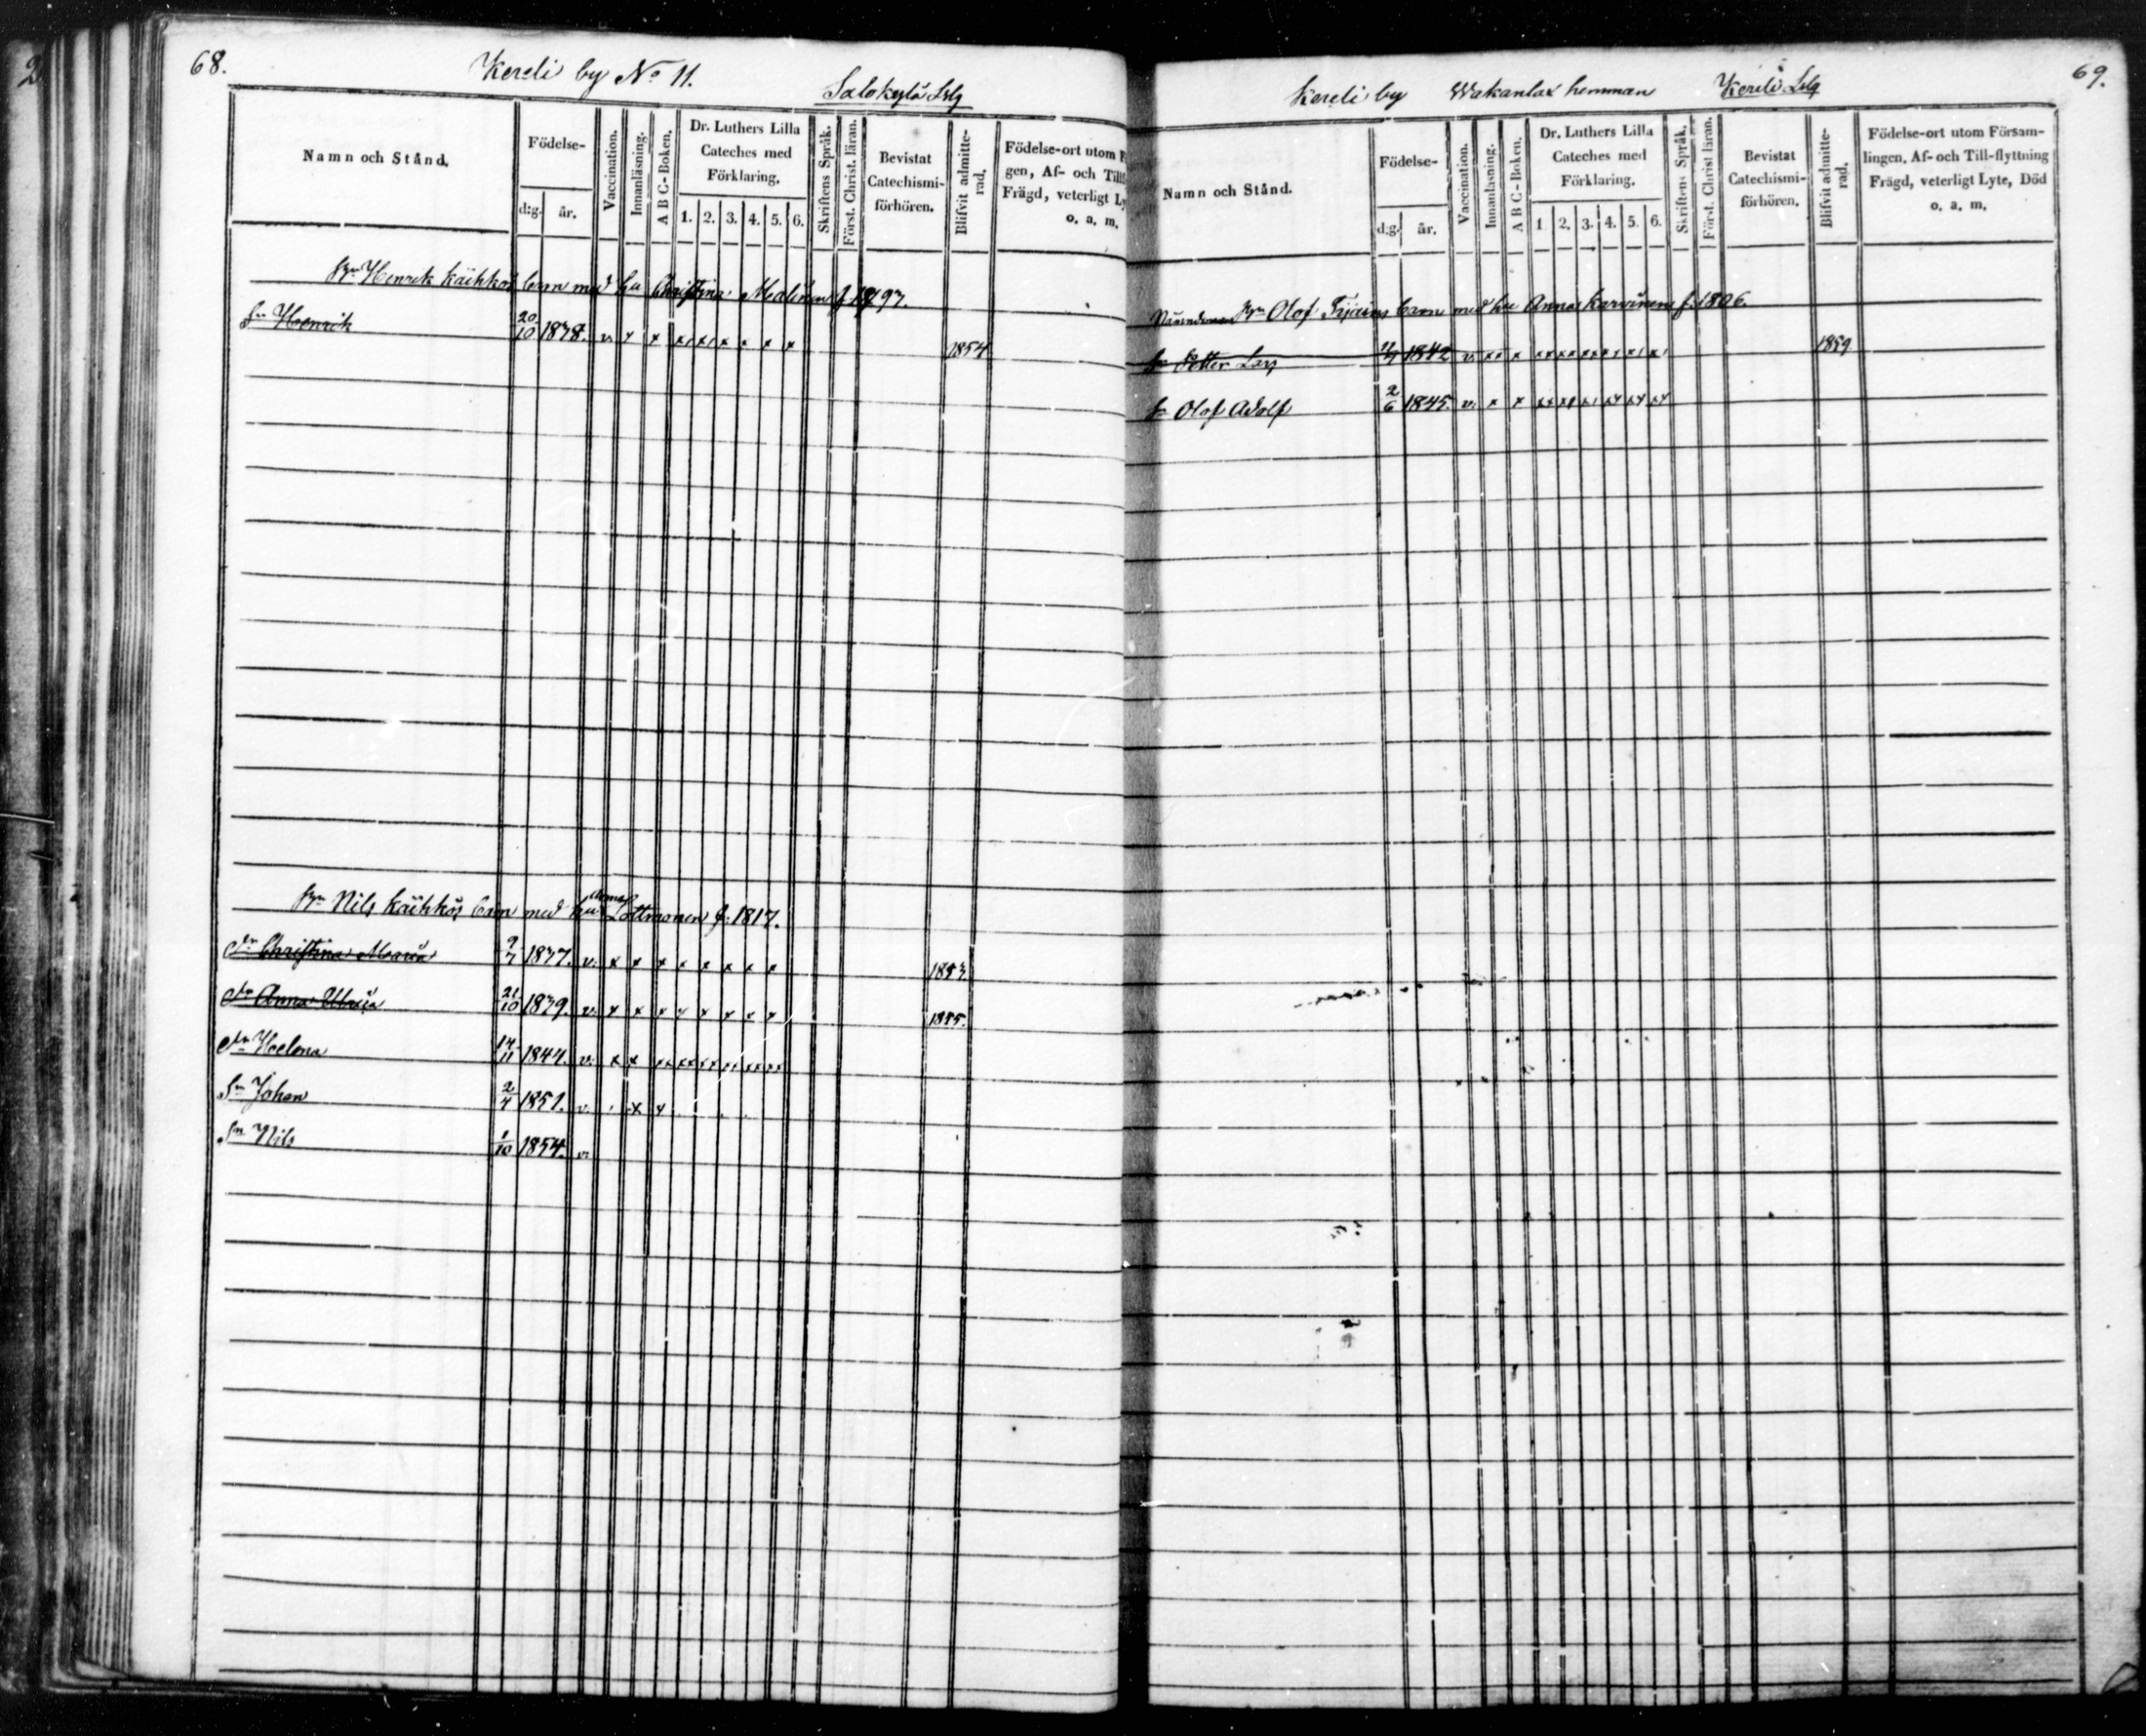 68.
Kereli by No 11.
Salokylä Lslg
Namn och Stånd.
Födelse-
d:g. år.
Vaccination.
Innanläsning.
A B C-Boken.
Dr. Luthers Lilla
Cateches med
Förklaring.
1. 2. 3. 4. 5. 6.
Skriftens Språk.
Först. Christ. läran.
Bevistat
Catechismi-
förhören.
Blifvit admitte-
rad.
Födelse-ort utom
gen, Af- och
Frägd, veterligt
o. a. m.
Henrik Kähkös barn med hu Christina f. 1797.
Sn Henrik 20/10 1838. v. x x x x x x x x 1854
Nils Kähkös barn med hu Anna Lottmonen f. 1817.
dr Christina Maria 9/7 1837. v. x x x x x x x x 1853
dr Anna Maria 21/10 1839. v. x x x x x x x x 1855.
dr Helena 14/11 1844. v. x x xx xx xx xx xx xx
Sn Johan 2/4 1851. v. x x
Sn Nils 1/10 1854. v.
69.
Kereli by Wakanlax hemman Kereli Lslg
Namn och Stånd.
Födelse-
d:g. år.
Vaccination.
Innanläsning.
A B C-Boken.
Dr. Luthers Lilla
Cateches med
Förklaring.
1. 2. 3. 4. 5. 6.
Skriftens Språk.
Först. Christ läran.
Bevistat
Catechismi-
förhören.
Blifvit admitte-
rad.
Födelse-ort utom Försam-
lingen, Af- och Till-flyttning
Frägd, veterligt Lyte, Död
o. a. m.
Nämndeman Olof barn med hu Anna Karvinen f. 1806.
Sn Petter Lars 1842 v. xx x xx xx xx xx x x 1859
Sn Olof Adolf 2/6 1845. v. x x xx xx x xx xx xx